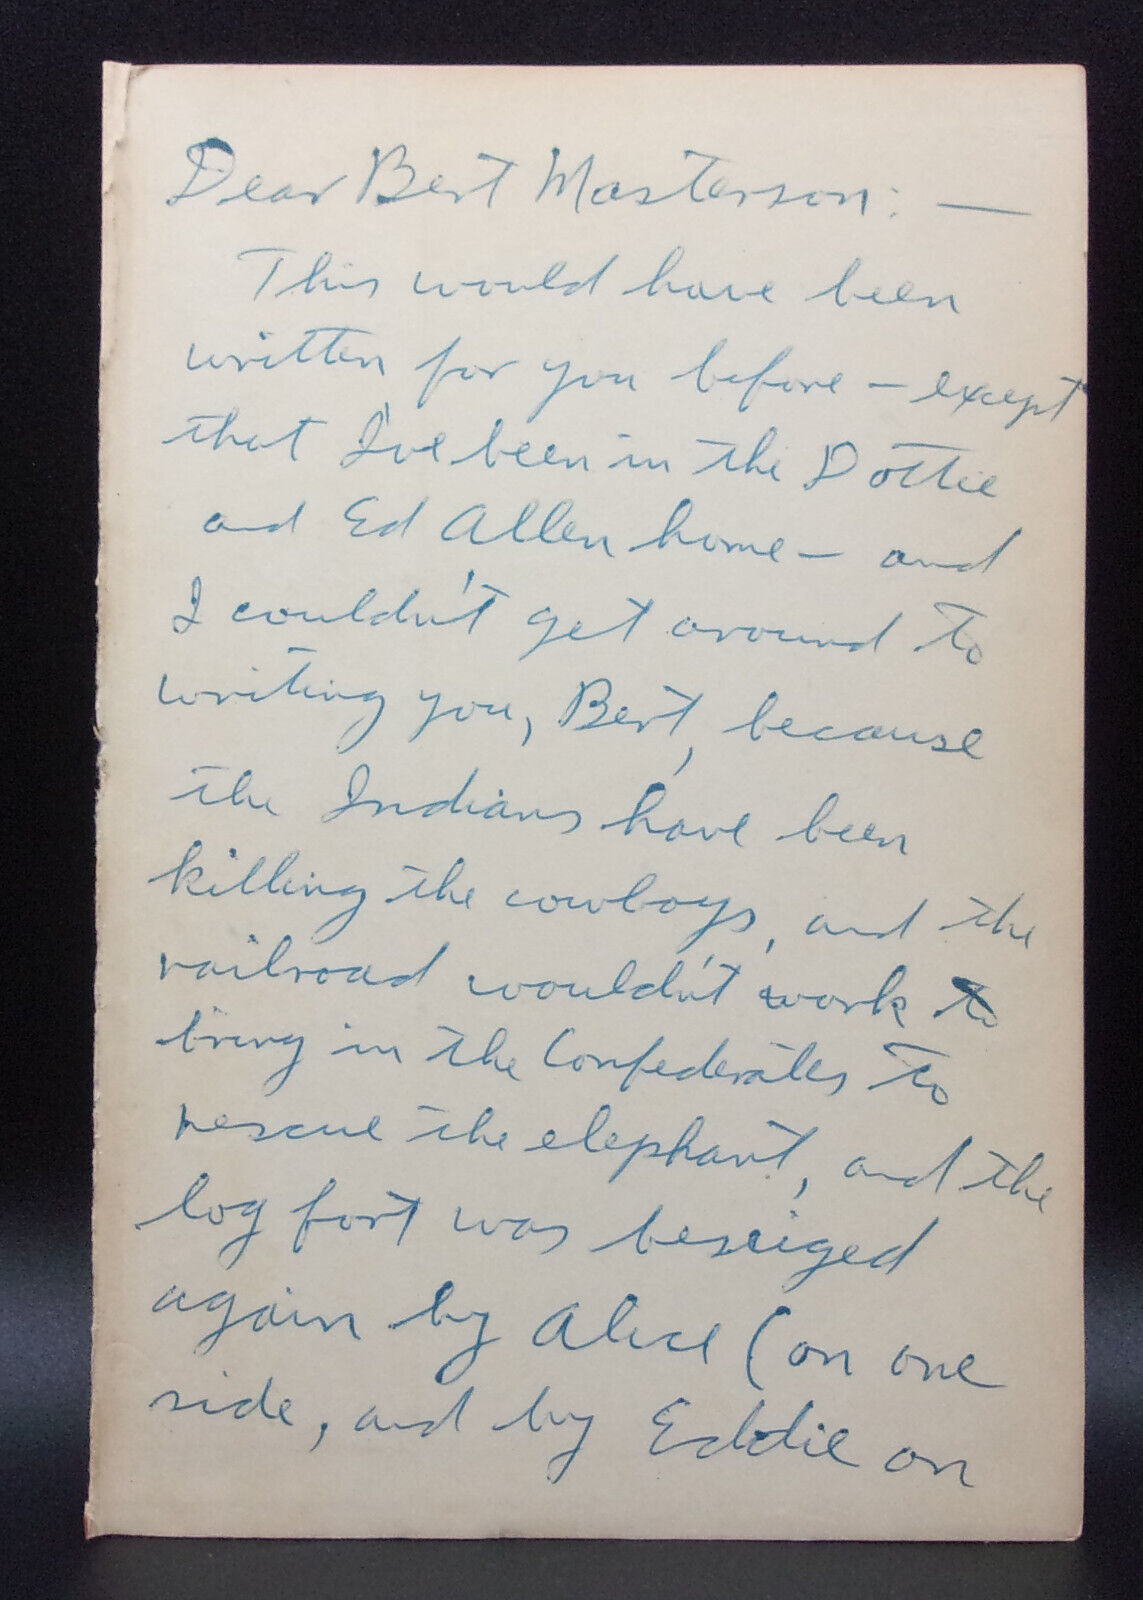 Dear Bert Masterson: —
This would have been
written for you before — except
that I've been in the Dottie
and Ed Allen home — and
I couldn't get around to
writing you, Bert, because
the Indians have been
killing the cowboys, and the
railroad wouldn't work to
bring in the Confederates to
rescue the elephant, and the
log fort was beseiged
again by Alice (on one
side, and by Eddie on